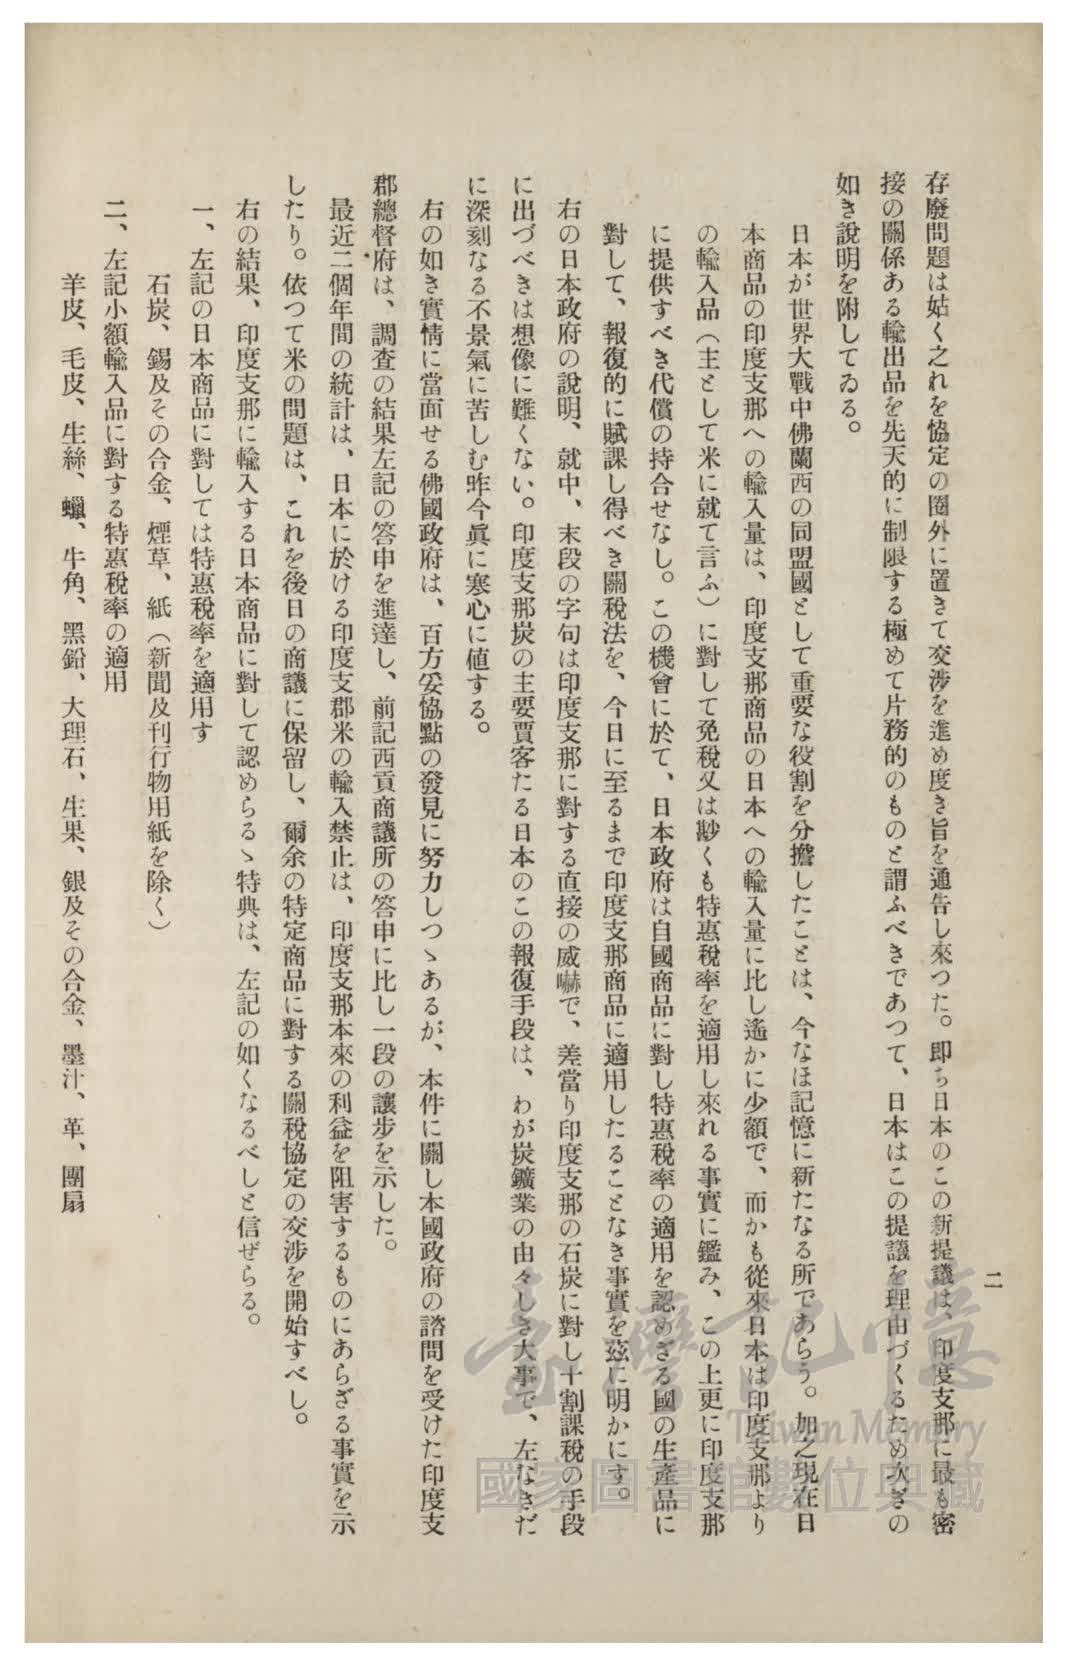 二
存廢問題は姑く之れを協定の圏外に置きて交渉を進め度き旨を通告し來つた。即ち日本のこの新提議は、印度支那に最も密
接の關係ある輸出品を先天的に制限する極めて片務的のものと謂ふべきであつて、日本はこの提議を理由づくるため次ぎの
如き說明を附してゐる。
日本が世界大戰中佛蘭西の同盟國として重要な役割を分擔したことは、今なほ記憶に新たなる所であらう。加之現在日
本商品の印度支那への輸入量は、印度支那商品の日本への輸入量に比し遙かに少額で、而かも從來日本は印度支那より
の輸入品（主として米に就て言ふ）に對して免稅又は尠くも特惠稅率を適用し來れる事實に鑑み、この上更に印度支那
に提供すべき代償の持合せなし。この機會に於て、日本政府は自國商品に對し特惠稅率の適用を認めざる國の生產品に
對して、報復的に賦課し得べき關稅法を、今日に至るまで印度支那商品に適用したることなき事實を茲に明かにす。
右の日本政府の說明、就中、末段の字句は印度支那に對する直接の威嚇で、差當り印度支那の石炭に對し十割課稅の手段
に出づべきは想像に難くない。印度支那炭の主要賈客たる日本のこの報復手段は、わが炭鑛業の由々しき大事で、左なきだ
に深刻なる不景氣に苦しむ昨今眞に寒心に値する。
右の如き實情に當面せる佛國政府は、百方妥協點の發見に努力しつゝあるが、本件に關し本國政府の諮問を受けた印度支
郡總督府は、調查の結果左記の答申を進達し、前記西貢商議所の答申に比し一段の讓步を示した。
最近二個年間の統計は、日本に於ける印度支郡米の輸入禁止は、印度支那本來の利益を阻害するものにあらざる事實を示
したり。依つて米の問題は、これを後日の商議に保留し、爾余の特定商品に對する關稅協定の交涉を開始すべし。
右の結果、印度支那に輸入する日本商品に對して認めらるゝ特典は、左記の如くなるべしと信ぜらる。
一、左記の日本商品に對しては特惠稅率を適用す
石炭、錫及その合金、煙草、紙（新聞及刊行物用紙を除く）
二、左記小額輸入品に對する特惠稅率の適用
羊皮、毛皮、生絲、蠟、牛角、黑鉛、大理石、生果、銀及その合金、墨汁、革、團扇
臺灣記憶
Taiwan Memory
國家圖書館數位典藏